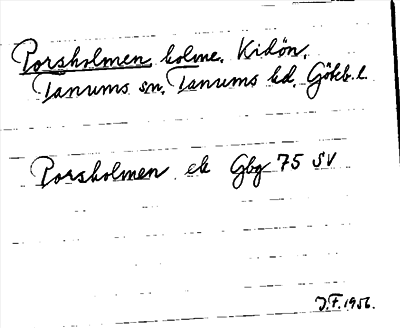 Porsholmen holme, Kidön,
Tanums sn, Tanums hd, Göteb. l.
Porsholmen ek Gbg 75 SV
J.F. 1956.